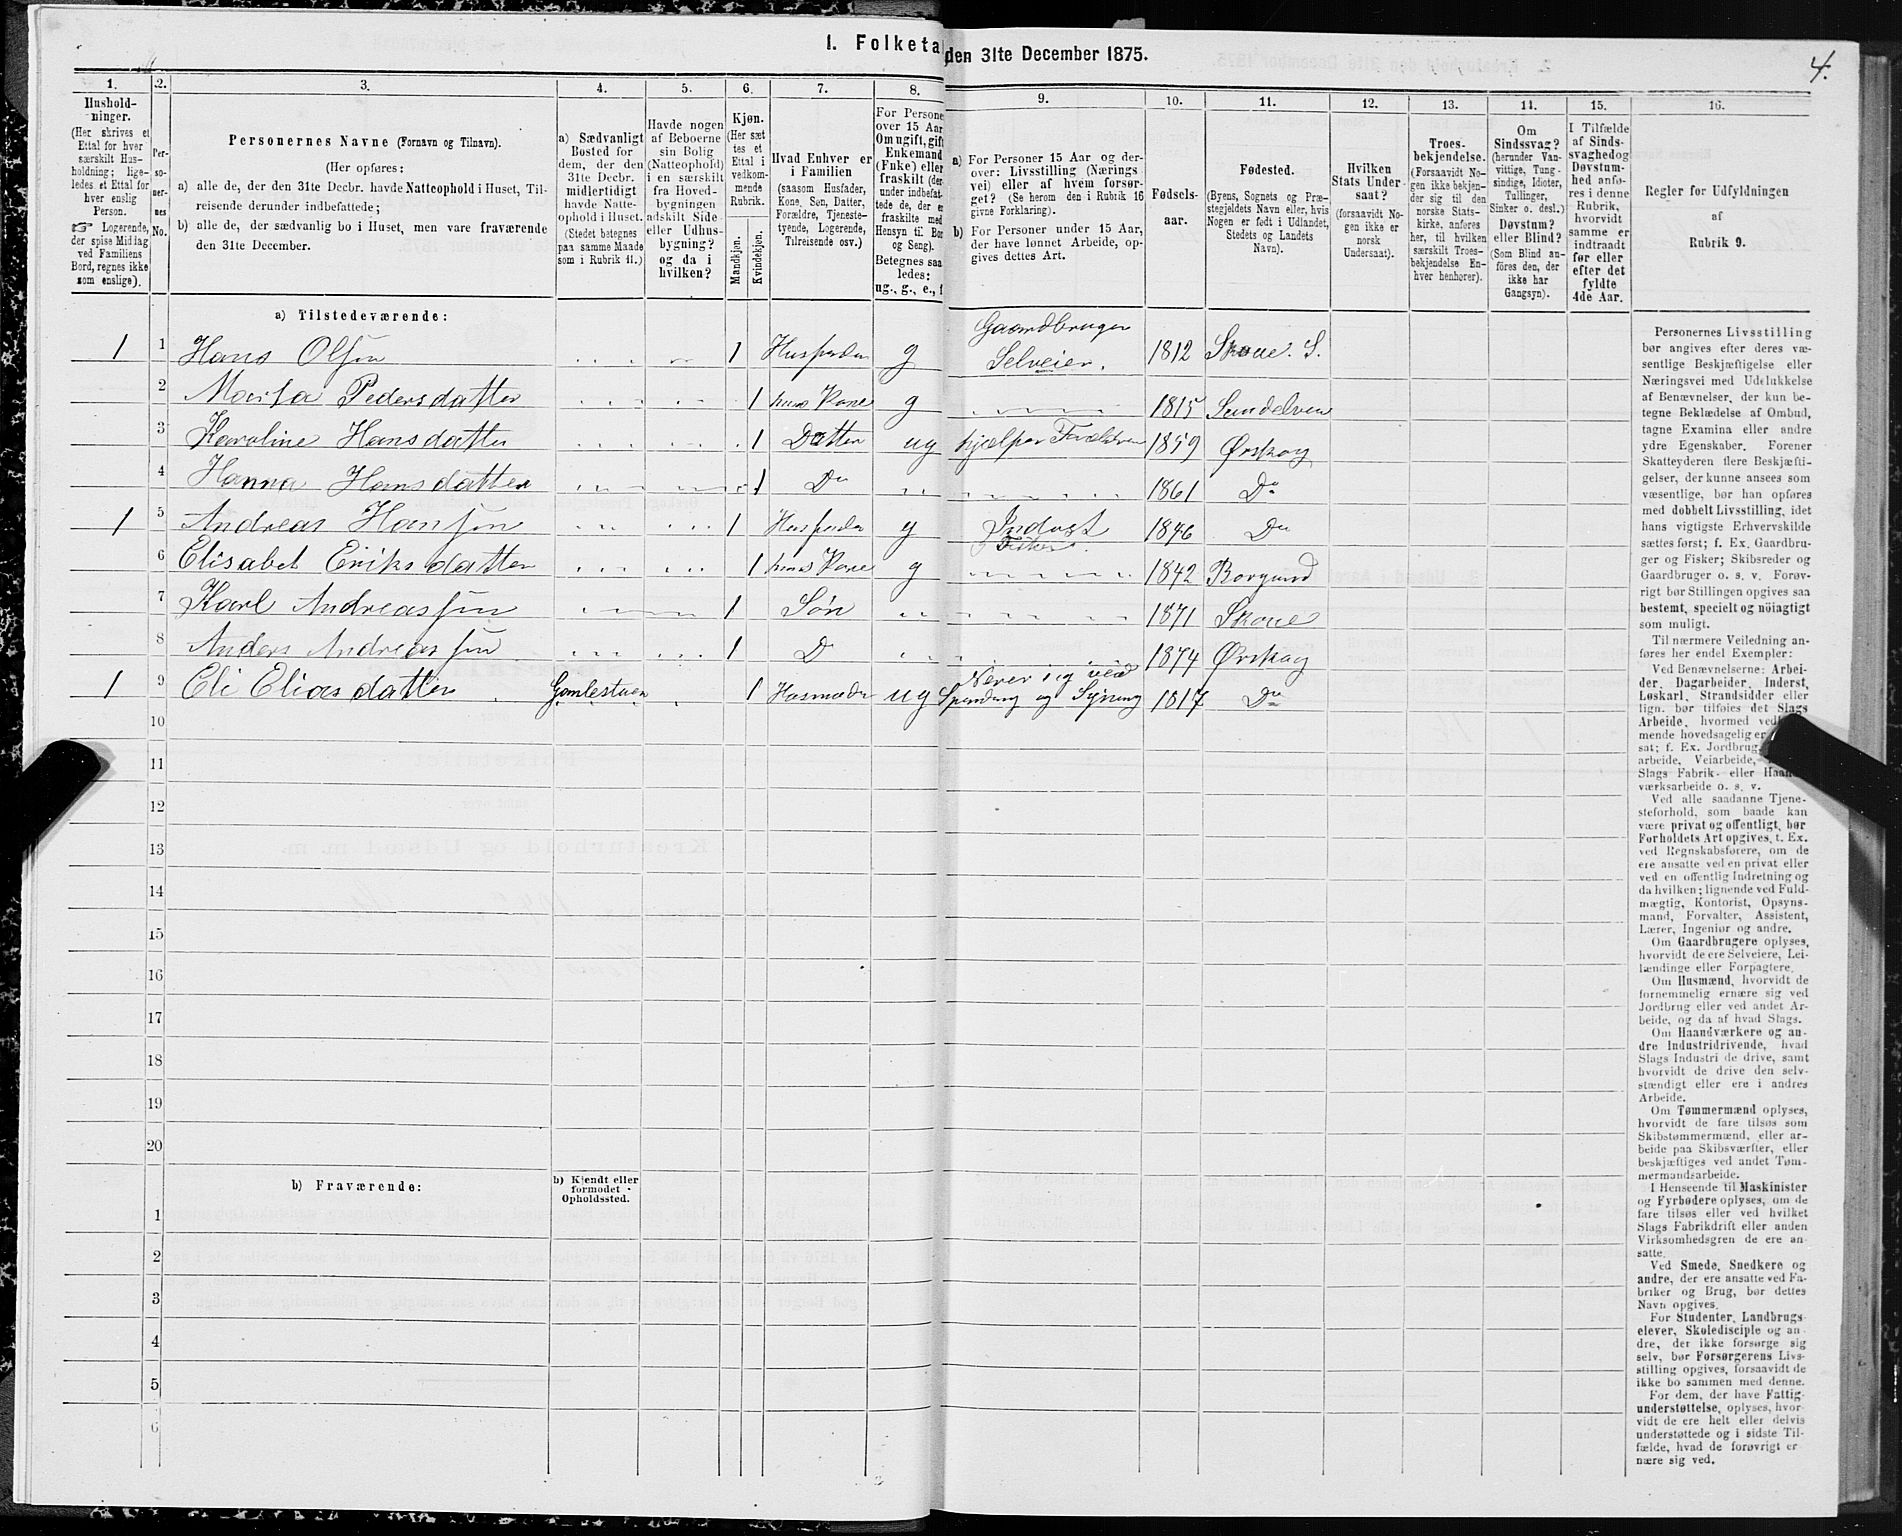 I. Folketa den 31te December 1875.
4.
1. 2. 3. 4. 5. 6. 7. 8. 9. 10. 11. 12. 13. 14. 15. 16.
Hushold-
ninger.
(Her skrives et
Ettal for hver
særskilt Hus-
holdning; lige-
ledes et Ettal for
hver enslig
Person.
☞ Logerende,
der spise Middag
ved Familiens
Bord, regnes ikke
som enslige).
Per-
so-
ner-
nes
No.
Personernes Navne (Fornavn og Tilnavn).
(Her opføres:
a) alle de, der den 31te Decbr. havde Natteophold i Huset, Til-
reisende derunder indbefattede;
b) alle de, der sædvanlig bo i Huset, men vare fraværende
den 31te December.
a) Sædvanligt
Bosted for
dem, der den
31te Decbr.
midlertidigt
havde Natte-
ophold i Huset.
(Stedet betegnes
paa samme Maade
som i Rubrik 11.)
Havde nogen
af Beboerne
sin Bolig
(Natteophold)
i en særskilt
fra Hoved-
bygningen
adskilt Side-
eller Udhus-
bygning?
og da i
hvilken?
Kjøn.
(Her sæt-
tes et
Ettal i
vedkom-
mende
Rubrik.
Mandkjøn.
Kvindekjøn.
Hvad Enhver er
i Familien
(saasom Husfader,
Kone, Søn, Datter,
Forældre, Tjeneste-
tyende, Logerende,
Tilreisende osv.)
For Persone
over 15 Aar
Om ugift, gift
Enkemand
(Enke) eller
fraskilt (der
under indbefat-
tede de, der e
fraskilte med
Hensyn til Bo
og Seng).
Betegnes saa
ledes:
ug., g., e., f
a) For Personer 15 Aar og der-
over: Livsstilling (Nærings
vei) eller af hvem forsør-
get? (Se herom den i Rubrik 16
givne Forklaring).
b) For Personer under 15 Aar,
der have lønnet Arbeide, op-
gives dettes Art.
Fødsels-
aar.
Fødested.
(Byens, Sognets og Præ-
stegjeldets Navn eller, hvis
Nogen er født i Udlandet,
Stedets og Landets
Navn).
Hvilken
Stats Under-
saat?
(forsaavidt No-
gen ikke er
norsk
Undersaat).
Troes-
bekjendelse.
(Forsaavidt No-
gen ikke bekjen-
der sig til den
norske Stats-
kirke, anføres
her, til hvilken
særskilt Troes-
bekjendelse En-
hver henhører).
Om
Sindssvag?
(herunder Van-
vittige, Tung-
sindige, Idioter,
Tullinger,
Sinker o. desl.)
Døvstum?
eller Blind?
(Som Blind an-
føres den, der
ikke har
Gangsyn).
I Tilfælde
af Sinds-
svaghedog
Døvstum-
hed anfø-
res i denne
Rubrik,
hvorvidt
samme er
indtraadt
før eller
efter det
fyldte
4de Aar.
Regler for Udfyldningen
af
Rubrik 9.
a) Tilstedeværende:
1 1 Hans Olsen 1 Husfader g Gaardbruger Selveier. 1812 Skoue. S.
2 Marta Pedersdatter 1 hans Kone g 1815 Sundelven
3 Karoline Hansdatter 1 Datter ug hjælper Forældrene 1859 Ørskog
4 Hanna Hansdatter 1 Do 1861 Do
1 5 Andreas Hansen 1 Husfader g Inderst Fisker. 1846 Do
6 Elisabet Eriksdatter 1 hans Kone g 1842 Borgund
7 Karl Andreassen 1 Søn 1871 Skoue
8 Anders Andreassen 1 D 1874 Ørskog
1 9 Eli Eliasdatter Gamlestuen 1 Husmoder ug Nærer sig ved Spinding og Syning 1817 Do
10
11
12
13
14
15
16
17
18
19
20
b) Fraværende:
b) Kjendt eller
formodet
Opholdssted.
1
2
3
4
5
6
Personernes Livsstilling
bør angives efter deres væ-
sentlige Beskjæftigelse eller
Næringsvei med Udelukkelse
af Benævnelser, der kun be-
tegne Beklædelse af Ombud,
tagne Examina eller andre
ydre Egenskaber. Forener
Skatteyderen flere Beskjæfti-
gelser, der kunne ansees som
væsentlige, bør han opføres
med dobbelt Livsstilling, idet
hans vigtigste Erhvervskilde
sættes først; f. Ex. Gaardbru-
ger og Fisker; Skibsreder og
Gaardbruger o. s. v. Forøv-
rigt bør Stillingen opgives saa
bestemt, specielt og nöiagtigt
som muligt.
Til nærmere Veiledning an-
føres her endel Exempler:
Ved Benævnelserne: Arbei-
der, Dagarbeider, Inderst,
Løskarl, Strandsidder eller
lign. bør tilføies det Slags
Arbeide, hvormed ved
mende hovedsagelig er
sat; f. Ex. Jordbrug,
arbeide, Veiarbeide,
Slags Fabrik- eller Haand-
værksarbeide o. s. v.
Ved alle saadanne Tjene-
steforhold, som baade kan
være privat og offentligt, bør
Forholdets Art opgives, t. Ex.
ved Regnskabsførere, om de
ere ansatte ved en privat eller
ved en offentlig Indretning og
da hvilken; lignende ved Fuld-
mægtig, Kontorist, Opsyns-
mand, Forvalter, Assistent,
Lærer, Ingeniør og andre.
Om Gaardbrugere oplyses,
hvorvidt de ere Selveiere, Lei-
lændinge eller Forpagtere.
Om Husmænd, hvorvidt de
fornemmelig ernære sig ved
Jordbrug eller ved andet Ar-
beide, og da af hvad Slags.
Om Haandværkere og an-
dre Industridrivende, hvad
Slags Industri de drive, samt
hvorvidt de drive den selv-
stændigt eller ere i andres
Arbeide.
Om Tømmermænd oplyses,
hvorvidt de fare tilsøs som
Skibstømmermænd, eller ar-
beide paa Skibsværfter, eller
beskjæftiges ved andet Tøm-
mermandsarbeide.
I Henseende til Maskinister
og Fyrbødere oplyses, om de
fare tilsøs eller ved hvilket
Slags Fabrikdrift eller anden
Virksomhedsgren de ere an-
satte.
Ved Smede, Snedkere og
andre, der ere ansatte ved Fa-
briker og Brug, bør dettes
Navn opgives.
For Studenter, Landbrugs-
elever, Skoledisciple og an-
dre, der ikke forsørge sig
selv, bør Forsørgerens Livs-
stilling opgives, forsaavidt de
ikke bo sammen med denne.
For dem, der have Fattig-
understøttelse, oplyses, hvor-
vidt de ere helt eller delvis
understøttede og i sidste Til-
fælde, hvad de forøvrigt er-
nære sig ved.